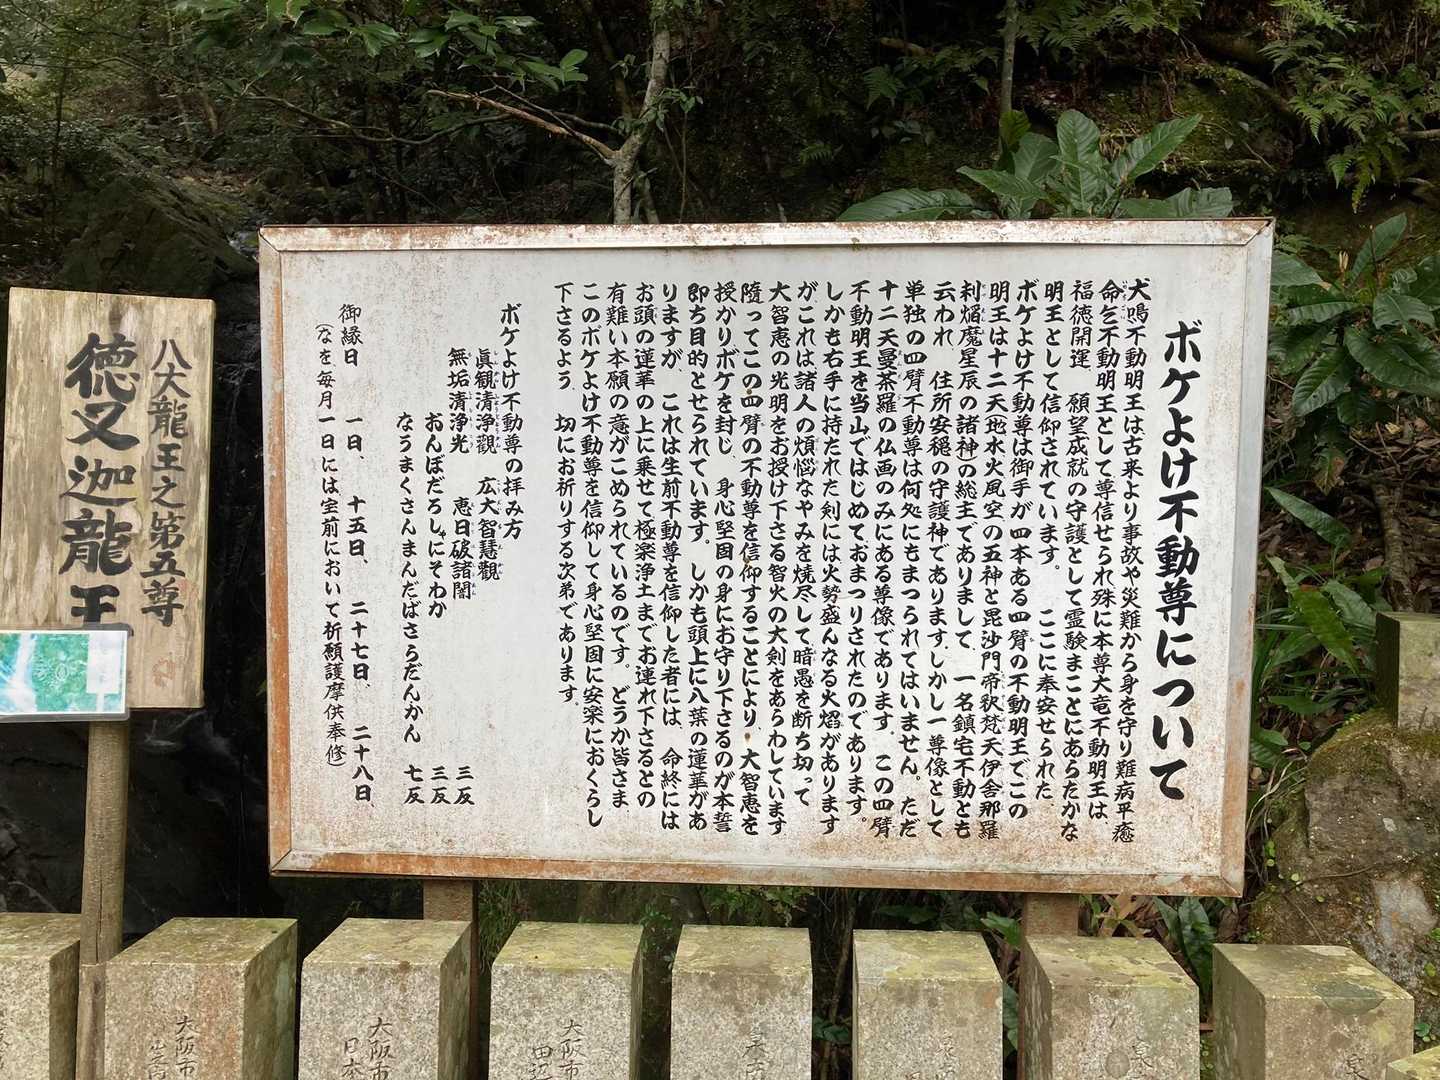 ボケよけ不動尊について
犬鳴不動明王は古来より事故や災難から身を守り難病平癒
命乞不動明王として尊信せられ殊に本尊大竜不動明王は、
福徳開運、願望成就の守護として霊験まことにあらたかな
明王として信仰されています。ここに奉安せられた、
ボケよけ不動尊は御手が四本ある四臂の不動明王でこの
明王は十二天(地水火風空の五神と毘沙門帝釈梵天伊舎那羅
刹焔魔星辰の諸神の総主でありまして、一名鎮宅不動とも
云われ、住所安穏の守護神であります、しかし一尊像として
単独の四臂不動尊は何処にもまつられてはいません。ただ
十二天曼荼羅の仏画のみにある尊像であります、この四臂
不動明王を当山ではじめておまつりされたのであります。
しかも右手に持たれた剣には火勢盛んなる火焔があります
がこれは諸人の煩悩なやみを焼尽して暗愚を断ち切って
大智恵の光明をお授け下さる智火の大剣をあらわしています
隨ってこの四臂の不動尊を信仰することにより、大智恵を
授かりボケを封じ、身心堅固の身にお守り下さるのが本誓
即ち目的とせられています。しかも頭上に八葉の蓮華があ
りますが、これは生前不動尊を信仰した者には、命終には
お頭の蓮華の上に乗せて極楽浄土までお連れ下さるとの
有難い本願の意がこめられているのです。どうか皆さま、
このボケよけ不動尊を信仰して身心堅固に安楽におくらし
下さるよう、切にお祈りする次第であります。
ボケよけ不動尊の拝み方
眞観清浄觀 広大智慧觀
無垢清浄光 恵日破諸闇 三反
おんぼだろしゃにそわか 三反
なうまくさんまんだばさらだんかん 七反
御縁日 一日、十五日、二十七日、二十八日、
(なを毎月一日には宝前において祈願護摩供奉修)
八大龍王之第五尊
徳叉迦龍王
大阪市
大阪市
日本
大阪市
田辺